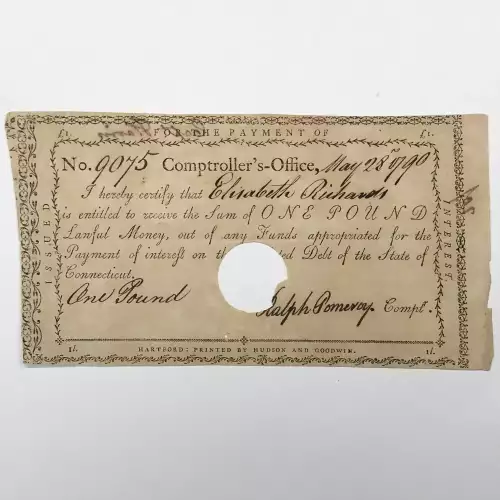 £1. FOR THE PAYMENT OF £1.
No. 9075 Comptroller's-Office, May 28th 1790
I hereby certify that Elisabeth Richards
is entitled to receive the Sum of ONE POUND
Lawful Money, out of any Funds appropriated for the
Payment of interest on the Debt of the State of
Connecticut.
One Pound Ralph Pomeroy Compt.
1l. HARTFORD: PRINTED BY HUDSON AND GOODWIN. 1l.
ISSUED
INTEREST